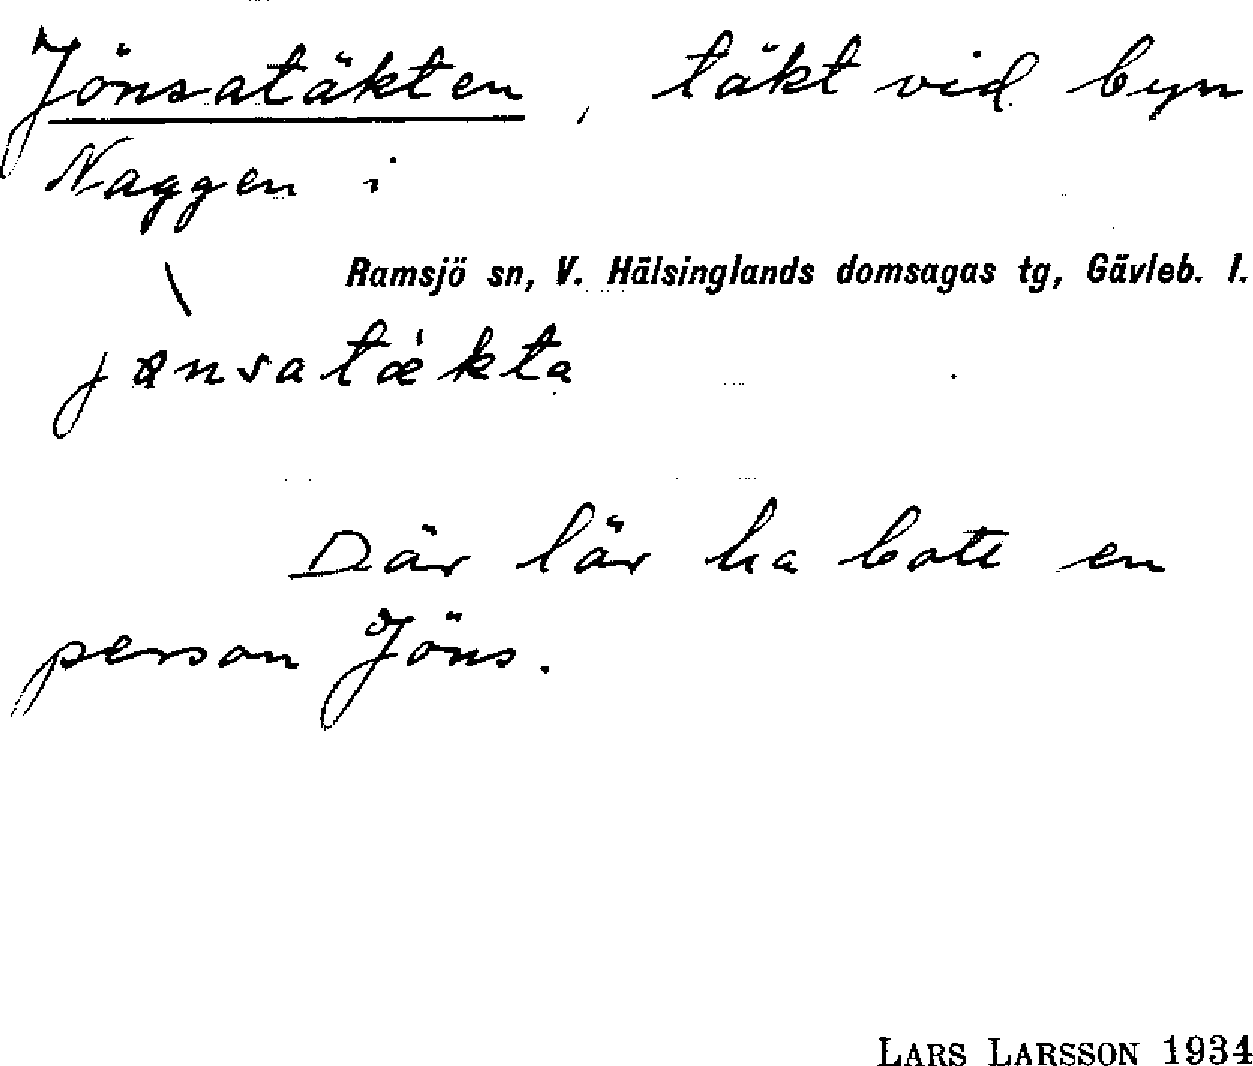 Jönsatäkten, täkt vid byn
Naggen i
Ramsjö sn, V. Hälsinglands domsagas tg, Gävleb. l.
jɵ̀nsatǽkta
Där lär ha bott en
person Jöns.
LARS LARSSON 1934